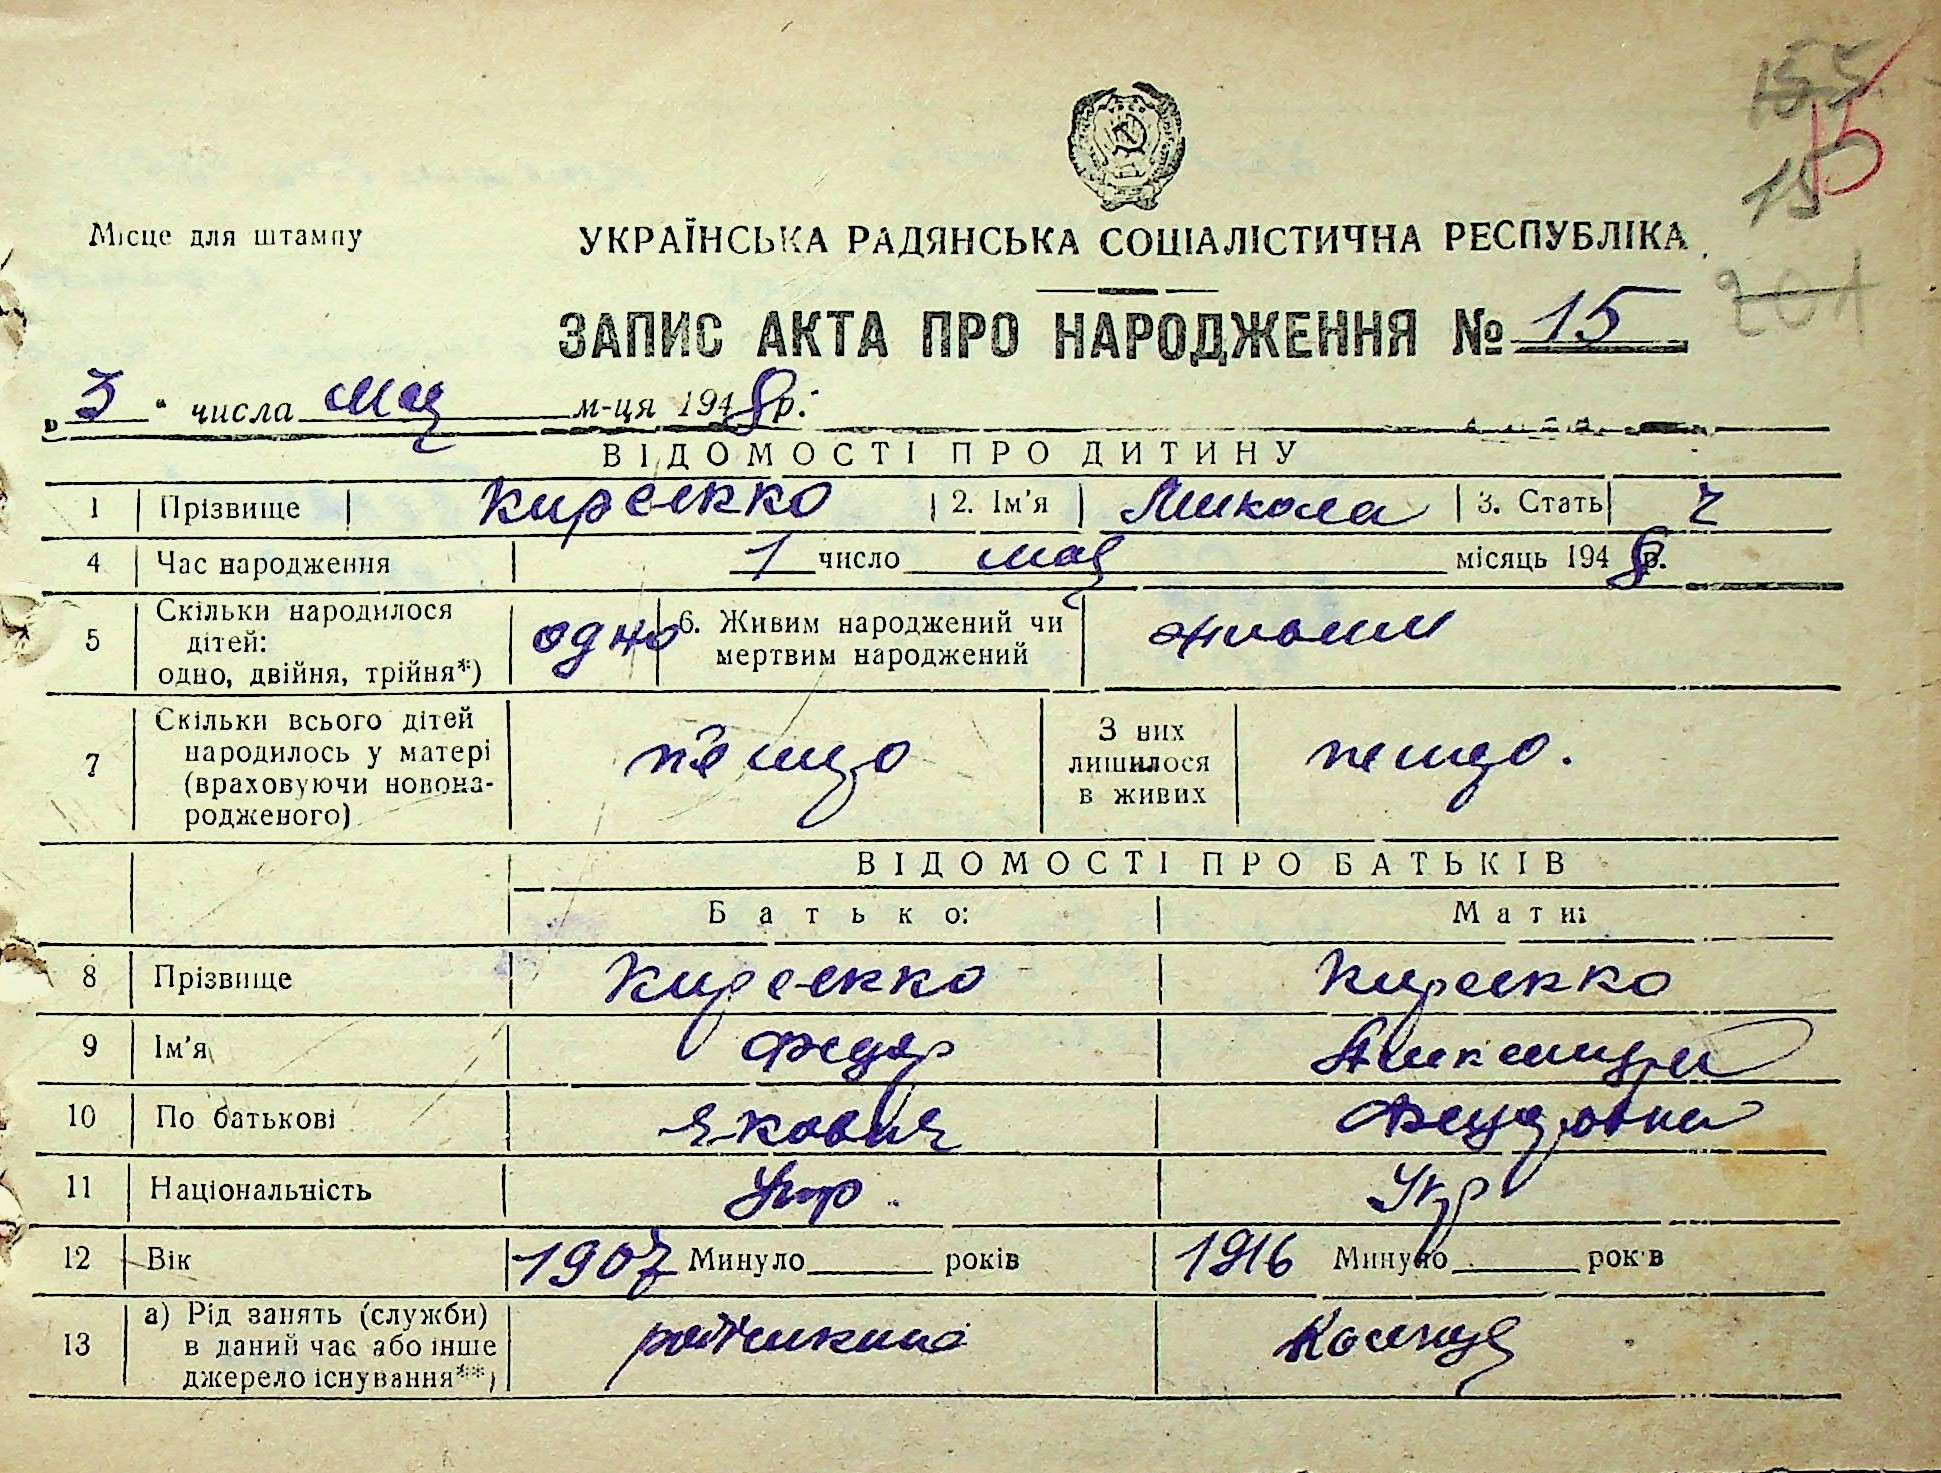 155
15
15
201
Місце для штампу
УКРАЇНСЬКА РАДЯНСЬКА СОЦІАЛІСТИЧНА РЕСПУБЛІКА
ЗАПИС АКТА ПРО НАРОДЖЕННЯ № 15
„3“ числа мая м-ця 1948р.
ВІДОМОСТІ ПРО ДИТИНУ
1 Прізвище Киреенко 2. Ім'я Микола 3. Стать ч
4 Час народження 1 число мая місяць 1948р.
5 Скільки народилося дітей: одно, двійня, трійня*) одно 6. Живим народжений чи мертвим народжений живим
7 Скільки всього дітей народилось у матері (враховуючи новонародженого) З них лишилося в живих
ВІДОМОСТІ ПРО БАТЬКІВ
Батько: Мати:
8 Прізвище Киреенко Киреенко
9 Ім'я Федор Александра
10 По батькові Якович Федоровна
11 Національність Укр. Укр
12 Вік 1907 Минуло років 1916 Минуло років
13 а) Рід занять (служби) в даний час або інше джерело існування**)